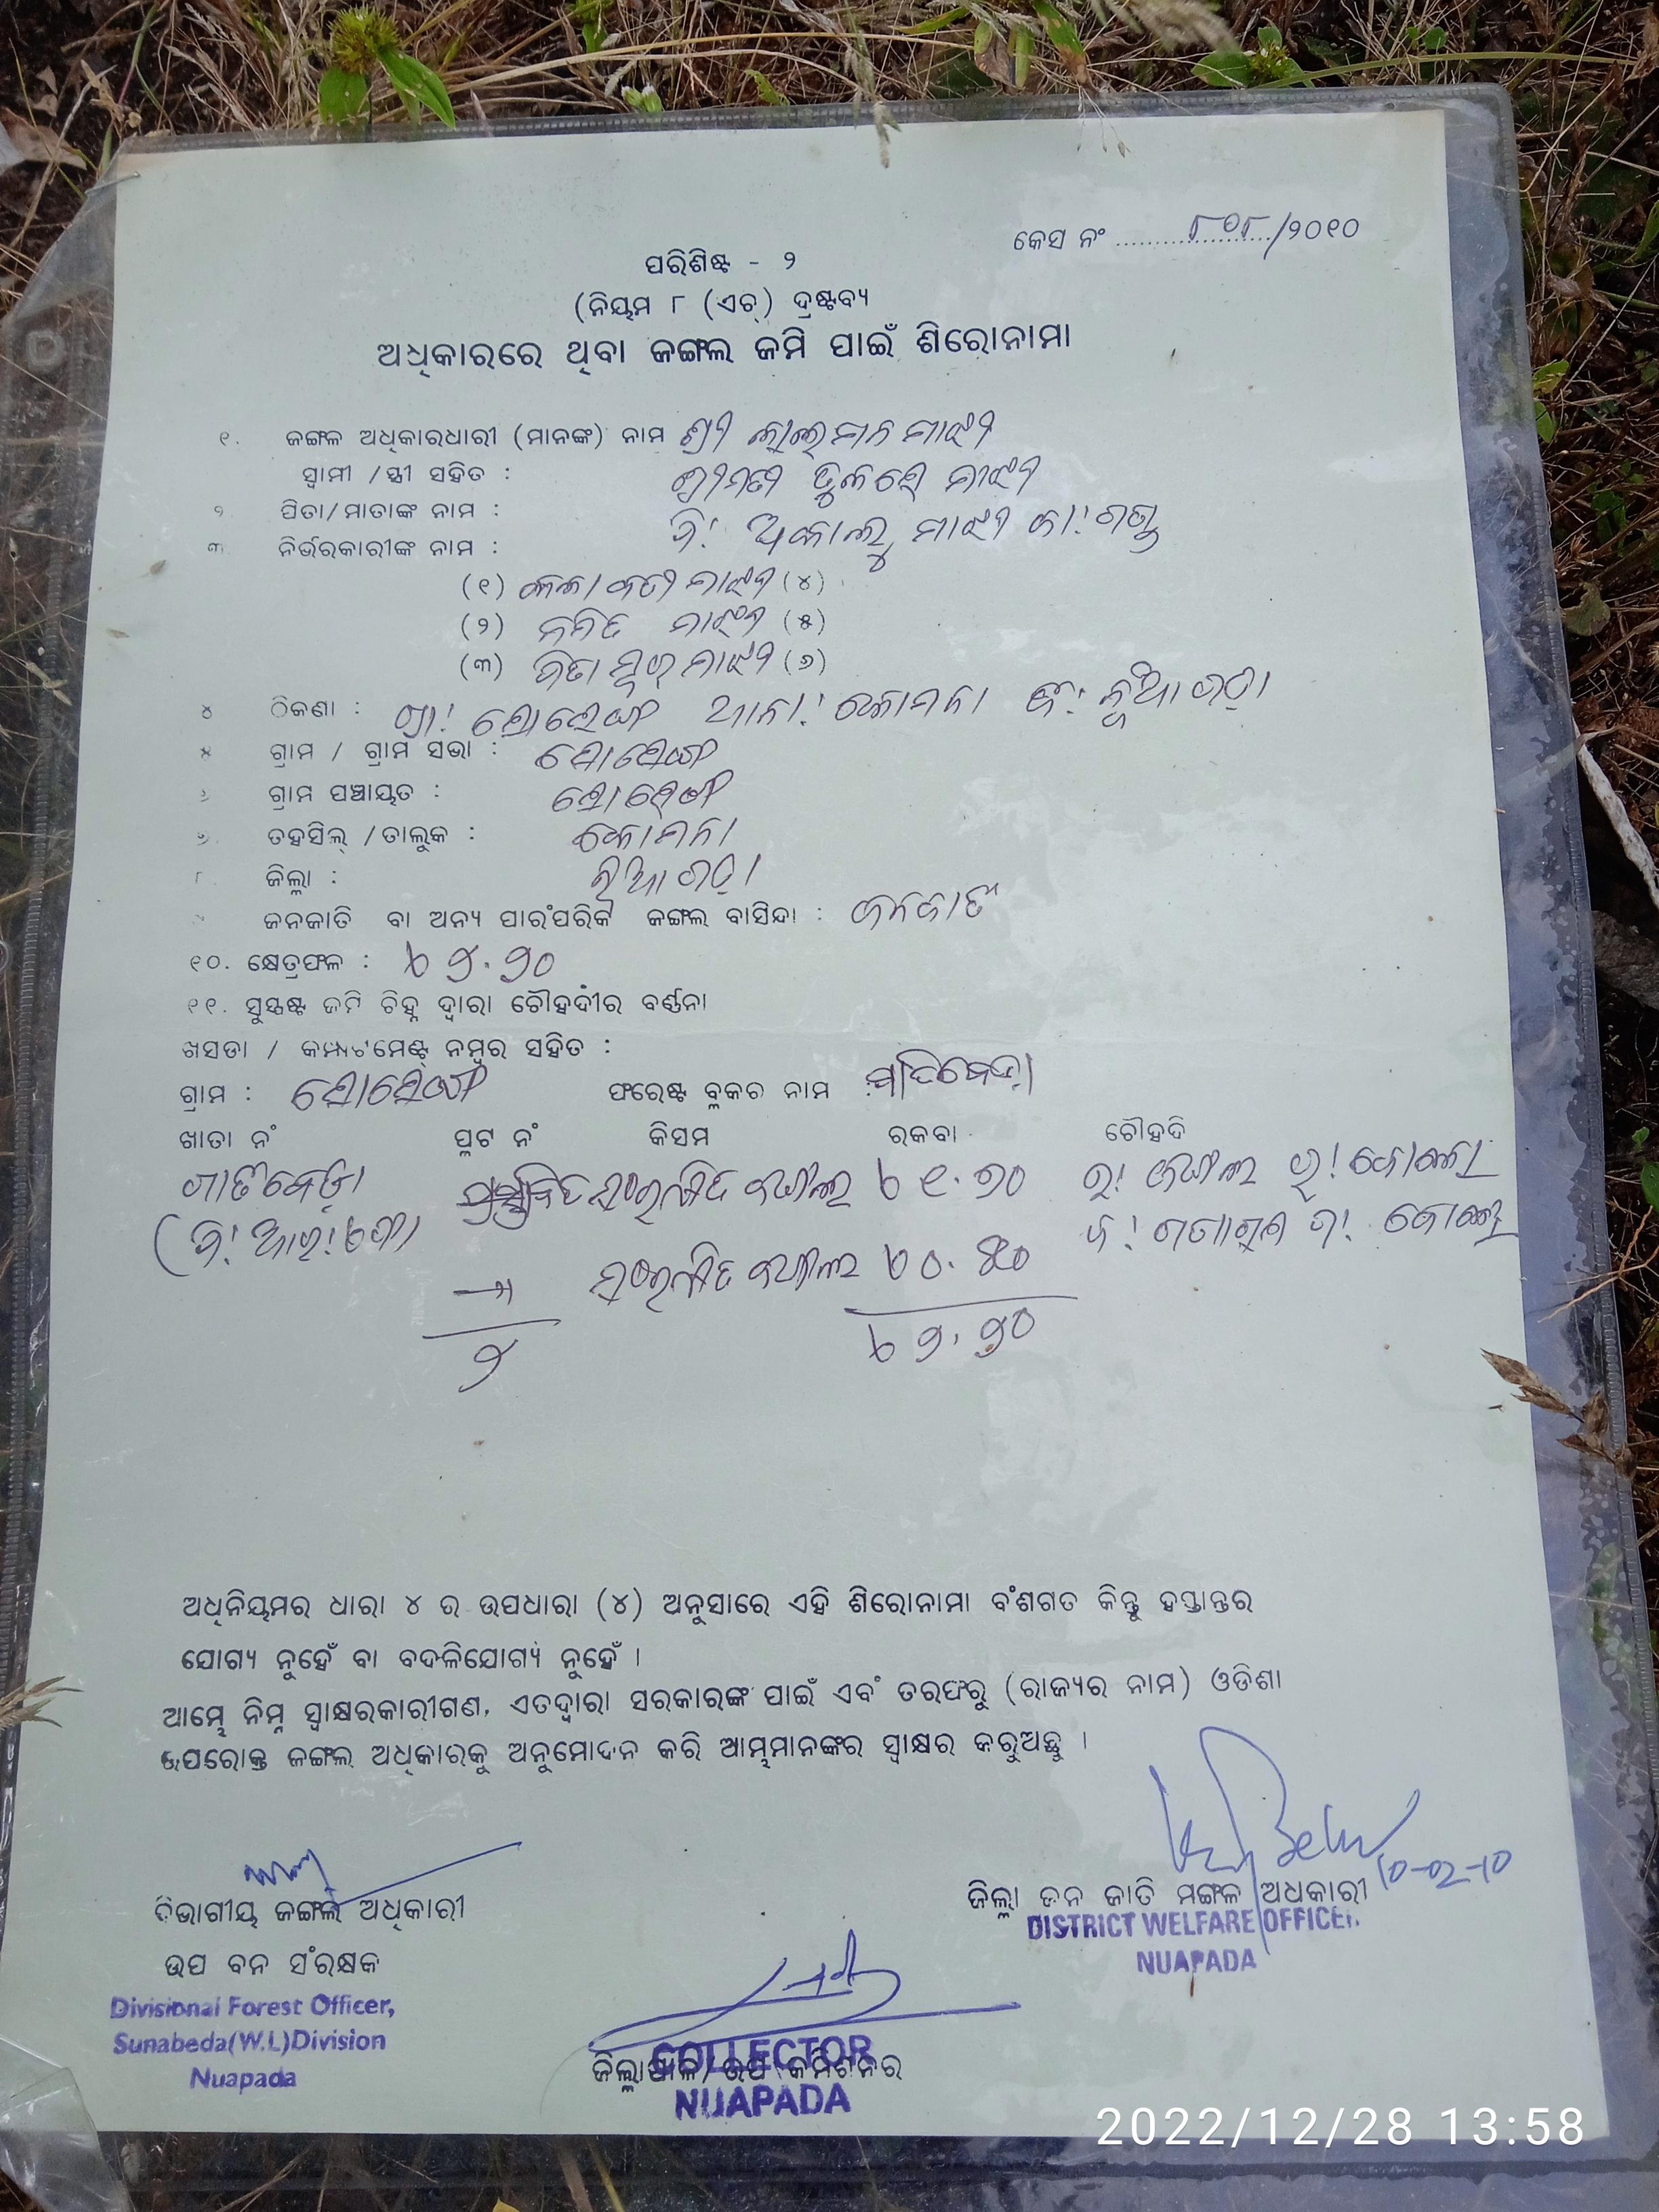 କେସ ନଂ ୮୦୮/୨୦୧୦
ପରିଶିଷ୍ଟ - ୨
(ନିୟମ ୮ (ଏଚ୍) ଦ୍ରଷ୍ଟବ୍ୟ
ଅଧିକାରରେ ଥିବା ଜଙ୍ଗଲ ଜମି ପାଇଁ ଶିରୋନାମା
୧. ଜଙ୍ଗଳ ଅଧିକାରଧାରୀ (ମାନଙ୍କ) ନାମ ଶ୍ରୀ ଲାଲ୍‌ମନ ମାଝୀ
ସ୍ୱାମୀ /ସ୍ତ୍ରୀ ସହିତ : ଶ୍ରୀମତୀ ତୁଳସେ ମାଝୀ
୨ ପିତା/ମାତାଙ୍କ ନାମ : ପି! ଅକାଲୁ ମାଝୀ ଜା! ଗଣ୍ଡ
୩ ନିର୍ଭରକାରୀଙ୍କ ନାମ :
(୧) କଳାବତୀ ମାଝୀ (୪)
(୨) ମାଝୀ (୫)
(୩) ମାଝୀ (୬)
୪ ଠିକଣା : ଗ୍ରା! ସୋସେଙ୍ଗ ଥାନା! କୋମନା ଜି! ନୂଆପଡ଼ା
୫ ଗ୍ରାମ / ଗ୍ରାମ ସଭା : ସୋସେଙ୍ଗ
୬ ଗ୍ରାମ ପଞ୍ଚାୟତ : ସୋସେଙ୍ଗ
୭ ତହସିଲ୍ /ତାଲୁକ : କୋମନା
୮ ଜିଲ୍ଲା : ନୂଆପଡ଼ା
୯ ଜନଜାତି ବା ଅନ୍ୟ ପାରଂପରିକ ଜଙ୍ଗଲ ବାସିନ୍ଦା : ଜନଜାତି
୧୦. କ୍ଷେତ୍ରଫଳ : ୨.୨୦
୧୧. ସୁସ୍ପଷ୍ଟ ଜମି ଚିହ୍ନ ଦ୍ୱାରା ଚୌହଦ୍ଦୀର ବର୍ଣ୍ଣନା
ଖସଡା / କମ୍ପାଟମେଣ୍ଟ ନମ୍ବର ସହିତ :
ଗ୍ରାମ : ସୋସେଙ୍ଗ ଫରେଷ୍ଟ ବ୍ଲକର ନାମ
ଖାତା ନଂ ପ୍ଲଟ ନଂ କିସମ ରକବା ଚୌହଦି
ସଂରକ୍ଷିତ ଜଙ୍ଗଲ ୧.୭୦ ଉ! ଜଙ୍ଗଲ
ସଂରକ୍ଷିତ ଜଙ୍ଗଲ ୦.୫୦
୨ ୨.୨୦
ଅଧିନିୟମର ଧାରା ୪ ର ଉପଧାରା (୪) ଅନୁସାରେ ଏହି ଶିରୋନାମା ବଂଶଗତ କିନ୍ତୁ ହସ୍ତାନ୍ତର
ଯୋଗ୍ୟ ନୁହେଁ ବା ବଦଳିଯୋଗ୍ୟ ନୁହେଁ ।
ଆମ୍ଭେ ନିମ୍ନ ସ୍ୱାକ୍ଷରକାରୀଗଣ, ଏତଦ୍ୱାରା ସରକାରଙ୍କ ପାଇଁ ଏବଂ ତରଫରୁ (ରାଜ୍ୟର ନାମ) ଓଡିଶା
ଉପରୋକ୍ତ ଜଙ୍ଗଲ ଅଧିକାରକୁ ଅନୁମୋଦନ କରି ଆମ୍ଭମାନଙ୍କର ସ୍ୱାକ୍ଷର କରୁଅଛୁ ।
10-02-10
ବିଭାଗୀୟ ଜଙ୍ଗଲ ଅଧିକାରୀ
ଉପ ବନ ସଂରକ୍ଷକ
Divisional Forest Officer,
Sunabeda(W.L)Division
Nuapada
ଜିଲ୍ଲା ଜନ ଜାତି ମଙ୍ଗଳ ଅଧିକାରୀ
DISTRICT WELFARE OFFICER.
NUAPADA
COLLECTOR
ଜିଲ୍ଲାପାଳ/ ଉପ କମିଶନର
NUAPADA
2022/12/28 13:58